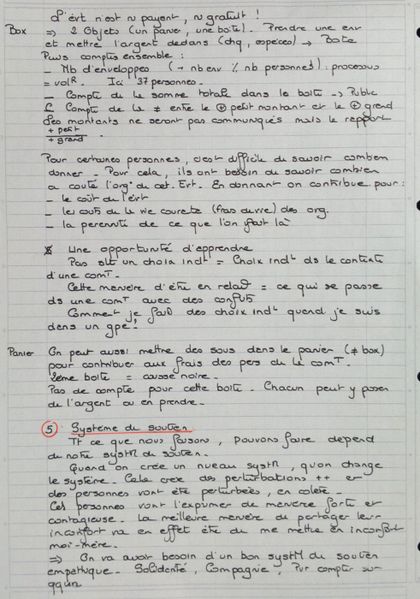 L'évt n'est ni payant, ni gratuit !
Box ⇒ 2 Objets (un panier, une boîte). Prendre une env
et mettre l'argent dedans (chq, espèces) → Boîte
Puis comptes ensemble :
- Nb d'enveloppes (→ nb env / nb personnes) : processus
= volR. Ici 37 personnes.
- Compte de la somme totale dans la boîte → Public
Compte de la ≠ entre le ⊕ petit montant et le ⊕ grand
Les montants ne seront pas communiqués mais le rapport
+ petit
+ grand
Pour certaines personnes, c'est difficile de savoir combien
donner. Pour cela, ils ont besoin de savoir combien
a coûté l'orgº de cet Evt. En donnant on contribue pour :
- le coût de l'évt
- les coûts de la vie courante (frais de vie) des org.
- la pérennité de ce que l'on fait là
Une opportunité d'apprendre
Pas slt un choix indˡ = Choix indˡ ds le contexte
d'une comT.
Cette manière d'être en relatº = ce qui se passe
ds une comT avec des conflits
Comment je fais des choix indˡ quand je suis
dans un gpe !
Panier On peut aussi mettre des sous dans le panier (≠ box)
pour contribuer aux frais des pers de la comT.
2ème boîte = caisse noire.
Pas de compte pour cette boîte. Chacun peut y poser
de l'argent ou en prendre.
5 Système de soutien
Tt ce que nous faisons, pouvons faire dépend
de notre systM de soutien.
Quand on crée un niveau systM, qu'on change
le système. Cela crée des perturbations ++ et
des personnes vont être perturbées, en colère.
Ces personnes vont l'exprimer de manière forte et
contagieuse. La meilleure manière de partager leur
inconfort va en effet être de me mettre en inconfort
moi-même.
⇒ On va avoir besoin d'un bon systM de soutien
empathique. Solidarité, Compagnie, Pvr compter sur
qqun